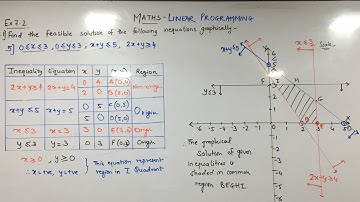 Ex 7.2
MATHS - LINEAR PROGRAMMING
Find the feasible solution of the following inequations graphically -
5] 0≤x≤3, 0≤y≤3, x+y≤5, 2x+y≥4
Inequality Equation x y Region
2x+y≥4 2x+y=4 0 4 A(0,4) Non-Origin
2 0 B(2,0)
x+y≤5 x+y=5 0 5 Origin
5 0
x≤3 x=3 3 0 E(3,0) Origin
y≤3 y=3 0 3 F(0,3) Origin
x≥0, y≥0
∴ x=+ve, y=+ve
This equation represent
region in I Quadrant
x+y≤5
x≤3
Scale
y≤3
2x+y≥4
∴ The graphical
Solution of given
inequalities is
shaded in common
region BEGHI.